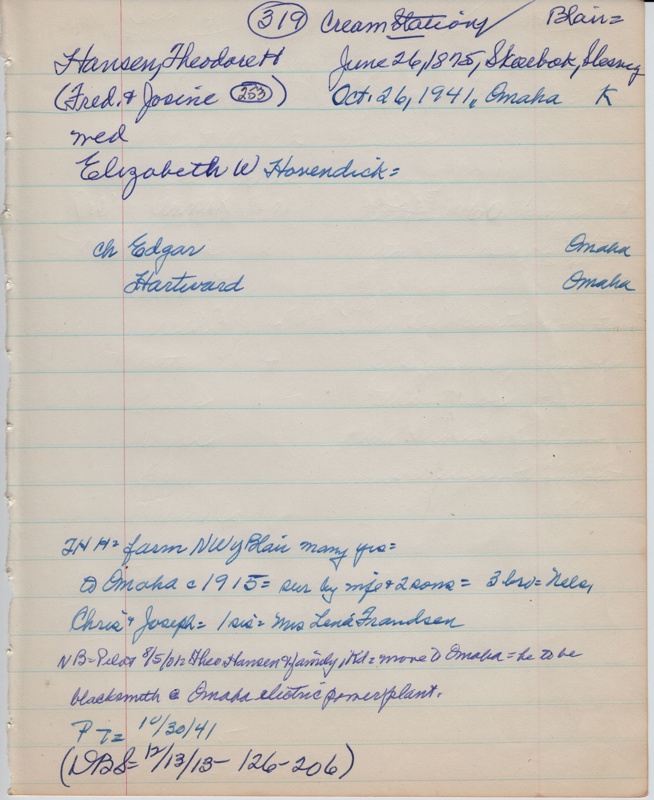 319 Cream Station Blair=
Hansen, Theodore H June 26, 1875, Skaebek, Slesvig
(Fred. & Josine 253) Oct. 26, 1941, Omaha K
med
Elizabeth W Hovendick=
ch Edgar Omaha
Hartward Omaha
THH= farm NW of Blair many yrs=
to Omaha c 1915= sur by wife & 2 sons= 3 bro= Nels,
Chris & Joseph= 1 sis= Mrs Lena Frandsen
NB= Pilot 8/5/ Theo Hansen & family, = move to Omaha= he to be
blacksmith @ Omaha electric power plant.
PT= 10/30/41
(DBS= 12/13/15- 126-206)